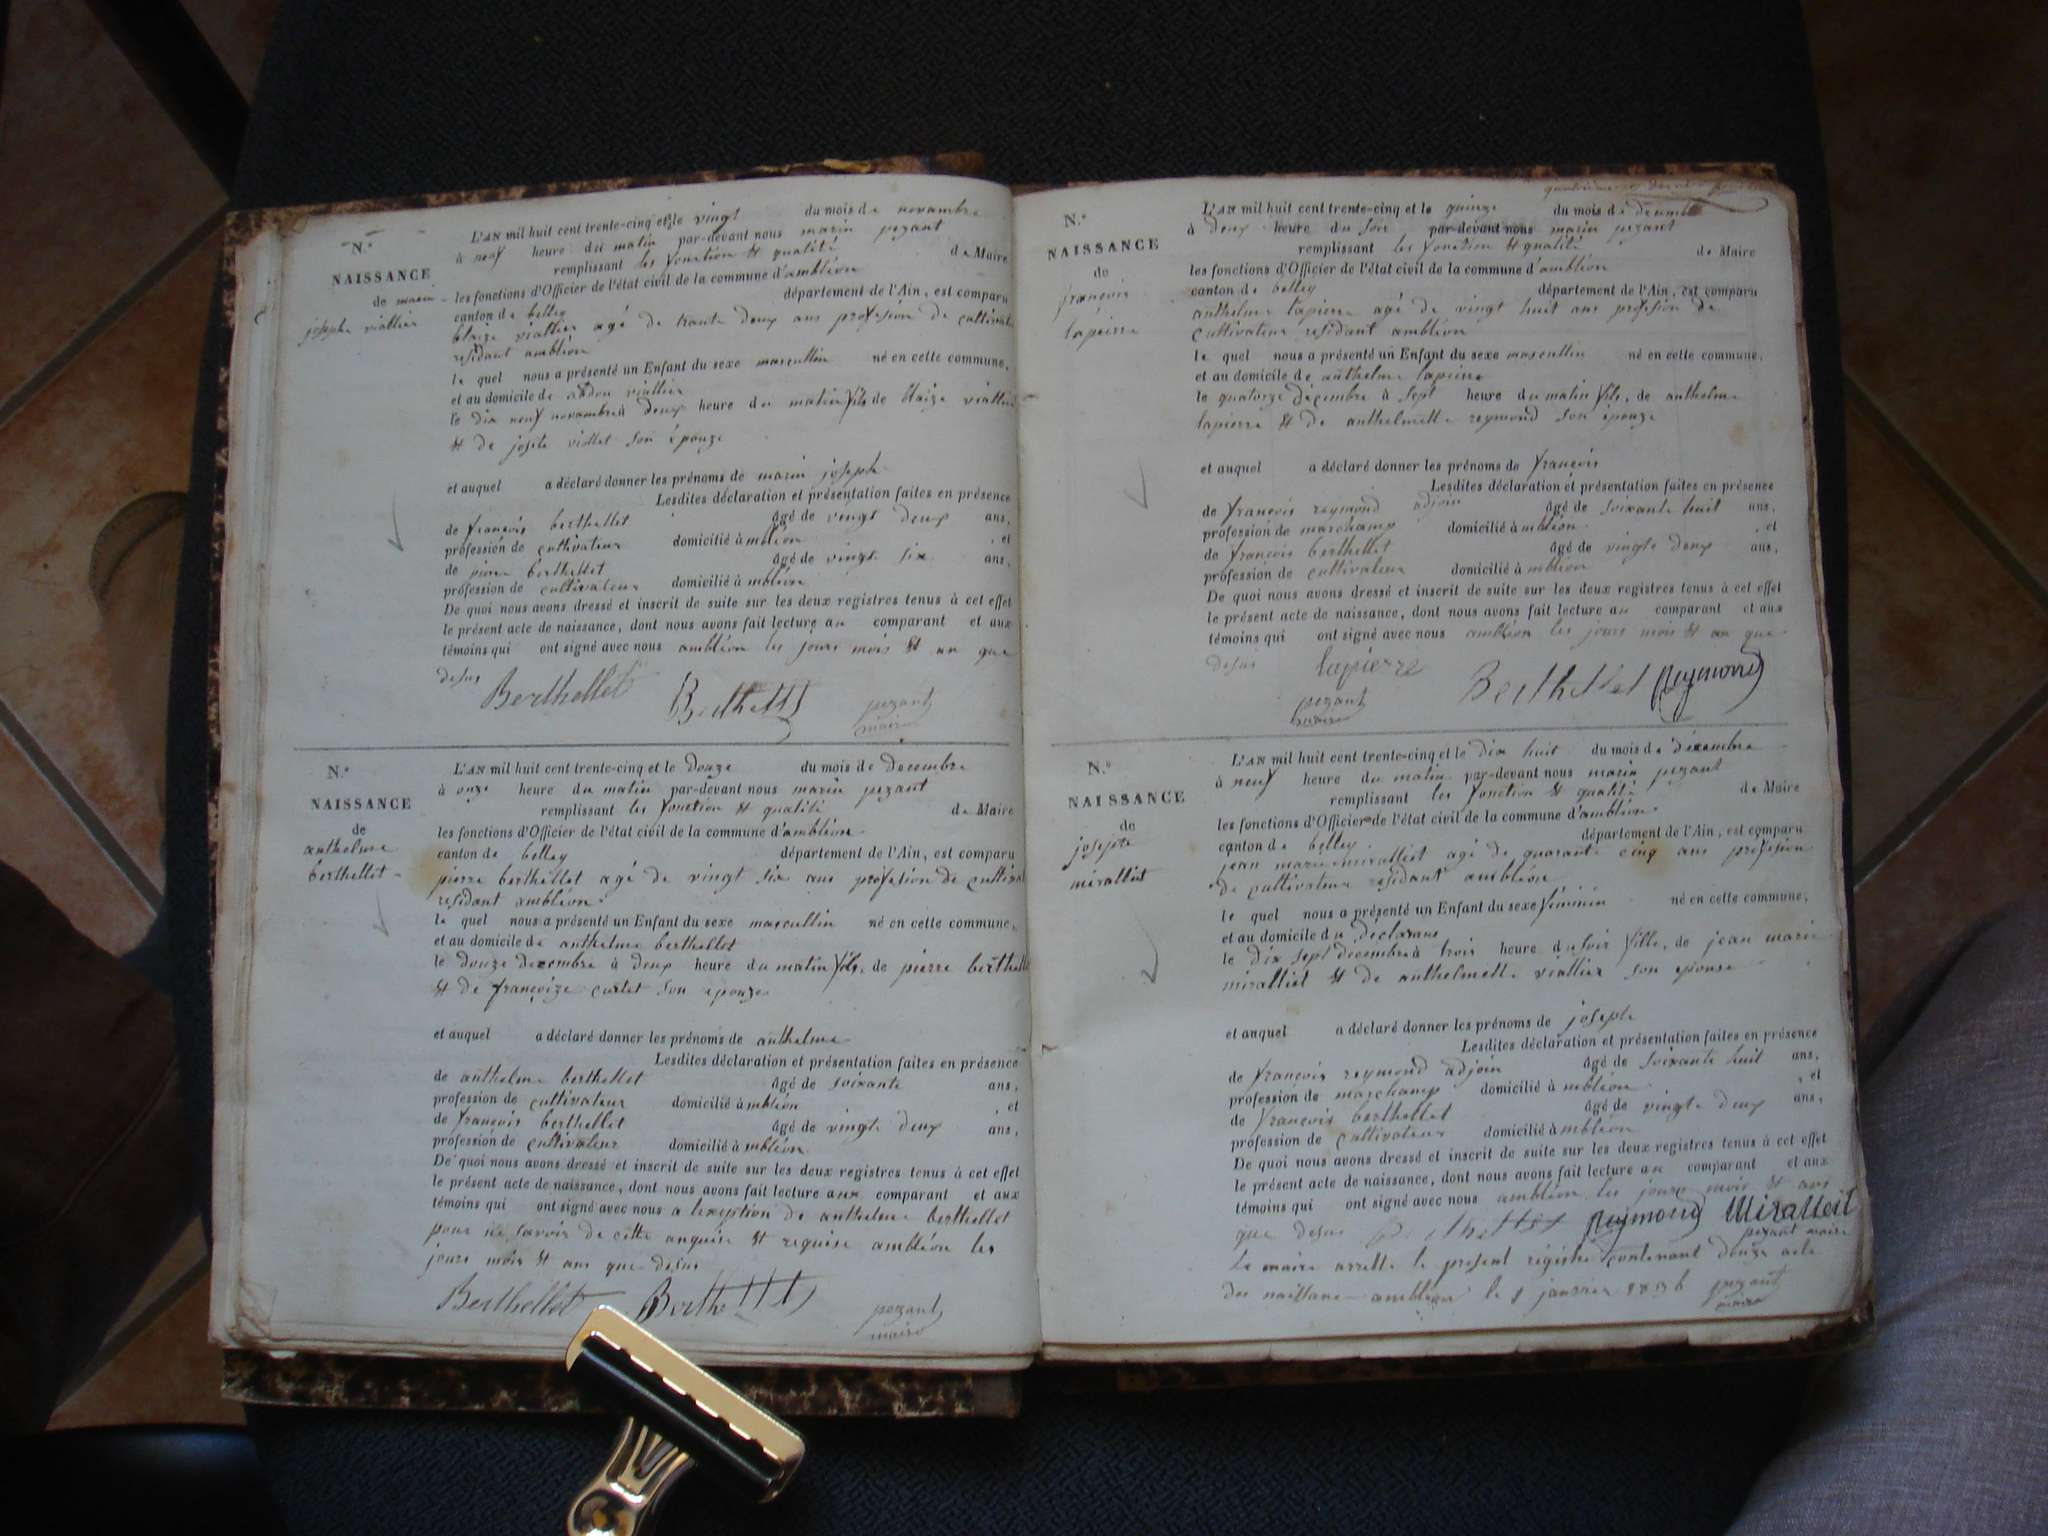 N.º
NAISSANCE
de marin
josephe viallier
L'AN mil huit cent trente-cinq et le vingt du mois de novambre
à neuf heure du matin par-devant nous marin pezant
remplissant les fonction et qualité de Maire
les fonctions d'Officier de l'état civil de la commune d'ambléon
canton de belley département de l'Ain, est comparu
blaize viallier agé de trante deux ans profesion de cultivateur
résidant ambléon
le quel nous a présenté un Enfant du sexe mascullin né en cette commune,
et au domicile de abdon viallier
le dix neuf novambre à deux heure du matin fils de blaize viallier
et de josete viollet son épouze
et auquel a déclaré donner les prénoms de marin joseph
Lesdites déclaration et présentation faites en présence
de françois berthellet âgé de vingt deux ans,
profession de cultivateur domicilié à mbléon et
de pierre berthellet âgé de vingte six ans,
profession de cultivateur domicilié à mbléon
De quoi nous avons dressé et inscrit de suite sur les deux registres tenus à cet effet
le présent acte de naissance, dont nous avons fait lecture au comparant et aux
témoins qui ont signé avec nous ambléon les jours mois et an que
desus
Berthellet Berthellet pezant
maire
N.º
NAISSANCE
de
anthelme
berthellet
L'AN mil huit cent trente-cinq et le douze du mois de decembre
à onze heure du matin par-devant nous marin pezant
remplissant les fonction et qualité de Maire
les fonctions d'Officier de l'état civil de la commune d'ambléon
canton de belley département de l'Ain, est comparu
pierre berthellet agé de vingt six ans profesion de cultivat
résidant ambléon
le quel nous a présenté un Enfant du sexe mascullin né en cette commune,
et au domicile de anthelme berthellet
le douze decembre à deux heure du matin fils, de pierre berthelle
et de françoize curtet son epouze
et auquel a déclaré donner les prénoms de anthelme
Lesdites déclaration et présentation faites en présence
de anthelme berthellet âgé de soixante ans,
profession de cultivateur domicilié à mbléon et
de françois berthellet âgé de vingte deux ans,
profession de cultivateur domicilié à mbléon
De quoi nous avons dressé et inscrit de suite sur les deux registres tenus à cet effet
le présent acte de naissance, dont nous avons fait lecture aux comparant et aux
témoins qui ont signé avec nous a lexeption de anthelme berthellet
pour ne savoir de cette anquise et requise ambléon les
jours mois et ans que desus
Berthellet Berthellet pezant
maire
N.º
NAISSANCE
de
françois
lapierre
L'AN mil huit cent trente-cinq et le quinze du mois de decemb
à deux heure du soir par-devant nous marin pezant
remplissant les fonction et qualité de Maire
les fonctions d'Officier de l'état civil de la commune d'ambléon
canton de belley département de l'Ain, est comparu
anthelme lapierre agé de vingt huit ans profesion de
cultivateur résidant ambléon
le quel nous a présenté un Enfant du sexe mascullin né en cette commune,
et au domicile de anthelme lapierre
le quatorze décembre à sept heure du matin fils, de anthelme
lapierre et de anthelmette reymond son épouze
et auquel a déclaré donner les prénoms de françois
Lesdites déclaration et présentation faites en présence
de françois reymond adjoin âgé de soixante huit ans,
profession de marchamp domicilié à mbléon et
de françois berthellet âgé de vingte deux ans,
profession de cultivateur domicilié à mbléon
De quoi nous avons dressé et inscrit de suite sur les deux registres tenus à cet effet
le présent acte de naissance, dont nous avons fait lecture au comparant et aux
témoins qui ont signé avec nous ambléon les jours mois et an que
desus lapierre Berthellet Reymond
pezant
maire
N.º
NAISSANCE
de
josepte
mirallëit
L'AN mil huit cent trente-cinq et le dix huit du mois de décembre
à neuf heure du matin par-devant nous marin pezant
remplissant les fonction et qualité de Maire
les fonctions d'Officier de l'état civil de la commune d'ambléon
canton de belley département de l'Ain, est comparu
jean marie miralliet agé de quarante cinq ans profesion
de cultivateur résidant ambléon
le quel nous a présenté un Enfant du sexe féminin né en cette commune,
et au domicile du déclarans
le dix sept decembre à trois heure du soir fille, de jean marie
miralliet et de anthelmette viallier son epouse
et auquel a déclaré donner les prénoms de josepte
Lesdites déclaration et présentation faites en présence
de françois reymond adjoin âgé de soixante huit ans,
profession de marchamp domicilié à mbléon et
de françois berthellet âgé de vingte deux ans,
profession de cultivateur domicilié à mbléon
De quoi nous avons dressé et inscrit de suite sur les deux registres tenus à cet effet
le présent acte de naissance, dont nous avons fait lecture au comparant et aux
témoins qui ont signé avec nous ambléon les jours mois et ans
que desus Berthellet Reymond Miralleit
pezant maire
Le maire arrette le present régistre contenant douze acte
des naissance ambléon le 1 janvier 1836 pezant
maire